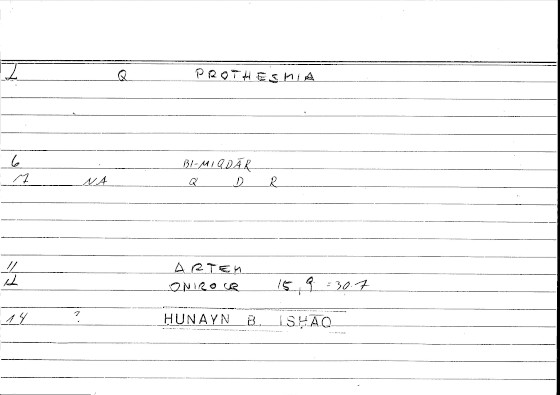 1 Q PROTHESMIA
6 BI-MIQDĀR
7 NA Q D R
11 ARTEM
12 ONIROCR 15,9 = 30.7
14 ? HUNAYN B. ISḤĀQ